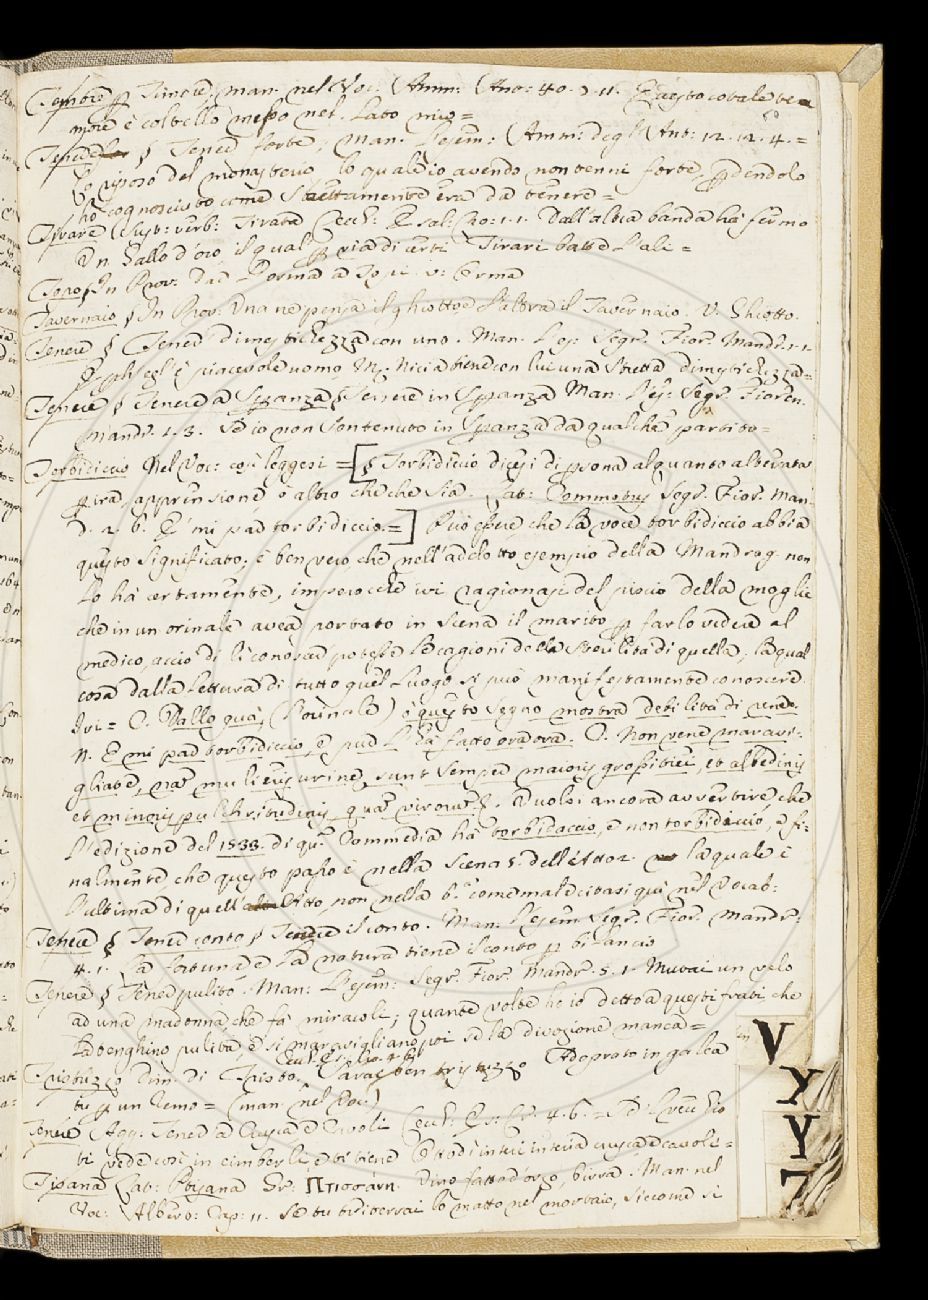 Temere Timore. man. nel Voc: Amm: Ant: 40. 3. 11. Questo cotale te-
more è coltello messo nel Lato mio =
Tenere § Tener forte. Man. l'esem: Amm: degl' Ant: 12. 12. 4. =
Lo riposo del monasterio lo quale io avendo non tenni forte. perdendolo
ho cognosciuto come strettamente era da tenere =
Tirare Sust: verb: Tirata Cecch: Dall'altra banda ha fermo
Un Gallo d'oro il qual per via di certi Tirari batte L'ali =
Topo § In Prov: Dar Dorma a Topi. v: Dorma
Tavernaio § In Prov: Una ne pensa il ghiotto e l'altra il Tavernaio. V. Ghiotto.
Tenere § Tener dimestichezza con uno. Man. l'es: Segr. Fior. Mandr. 1. 1.
perchè egli è piacevole uomo Ms. Nicia tien con lui una stretta dimestichezza =
Tenere § Tenere a Speranza § Tenere in Speranza Man. l'es: Segr. Fioren.
Mandr. 1. 3. Se io non son tenuto in Speranza da qualche partito =
Torbidiccio Nel Voc: così leggesi = [§ Torbidiccio dicesi di persona alquanto alterata
per ira, apprensione, o altro che che sia. Lat: Commotus Segr. Fior. Man.
d. 2. 6. E' mi par torbidiccio =] Può essere che la voce torbidiccio abbia
questo significato; è ben vero che nell'addotto esempio della Mandrag. non
Lo ha certamente, imperocchè ivi ragionasi del piscio della moglie
che in un orinale avea portato in scena il marito per farlo vedere al
medico, acciò di lì conoscer potesse le cagioni della sterilità di quella; la qual
cosa dalla lettura di tutto quel luogo si può manifestamente conoscere.
Ivi = C. Dallo quà, (l'orinale) o questo segno mostra debilità di rene.
N. E mi par torbidiccio, e pur l'ha fatto ora ora. C. Non vene maravi-
gliate, nam mulieris urinae sunt semper maioris grossitiei, et albedinis
et minoris pulchritudinis quam virorum &. Vuolsi ancora avvertire che
L'edizione del 1533. di qta Commedia ha torbidaccio, e non torbidiccio, e fi-
nalmente che questo passo è nella Scena 5. dell'Atto 2. la quale è
l'ultima di quell' Atto, non nella 6a come mal citasi qui nel Vocab:
Tenere § Tener conto § Tenere il conto. Man: l'esem. Segr. Fior. Mandr:
4. 1. La fortuna e la natura tiene il conto per bilancio
Tenere § Tener pulito. Man: l'esem: Segr. Fior. Mandr. 5. 1. Mutai un velo
ad una madonna che fa miracoli; quante volte ho io detto a questi frati che
la tenghino pulita, e si maravigliano poi se la divozione manca =
Tristuzzo Dim. di Tristo. Sarai ben tristuzzo Adoprato in galea
tu per un Remo = (man. nel Voc:)
Tenere Agg: Tener a Crusca e Cavoli Cecch: 4. 6. =
ti vede così in cimberli, e ti tiene crusca e cavoli =
Tisana Lat: Ptisana Gr: Πτισσανη. Vino fatto d'orzo, birra. Man. nel
Voc: Alber: Cap: 11. Se tu lo matto nel mortaio, siccome si
V
Y
Y
Z